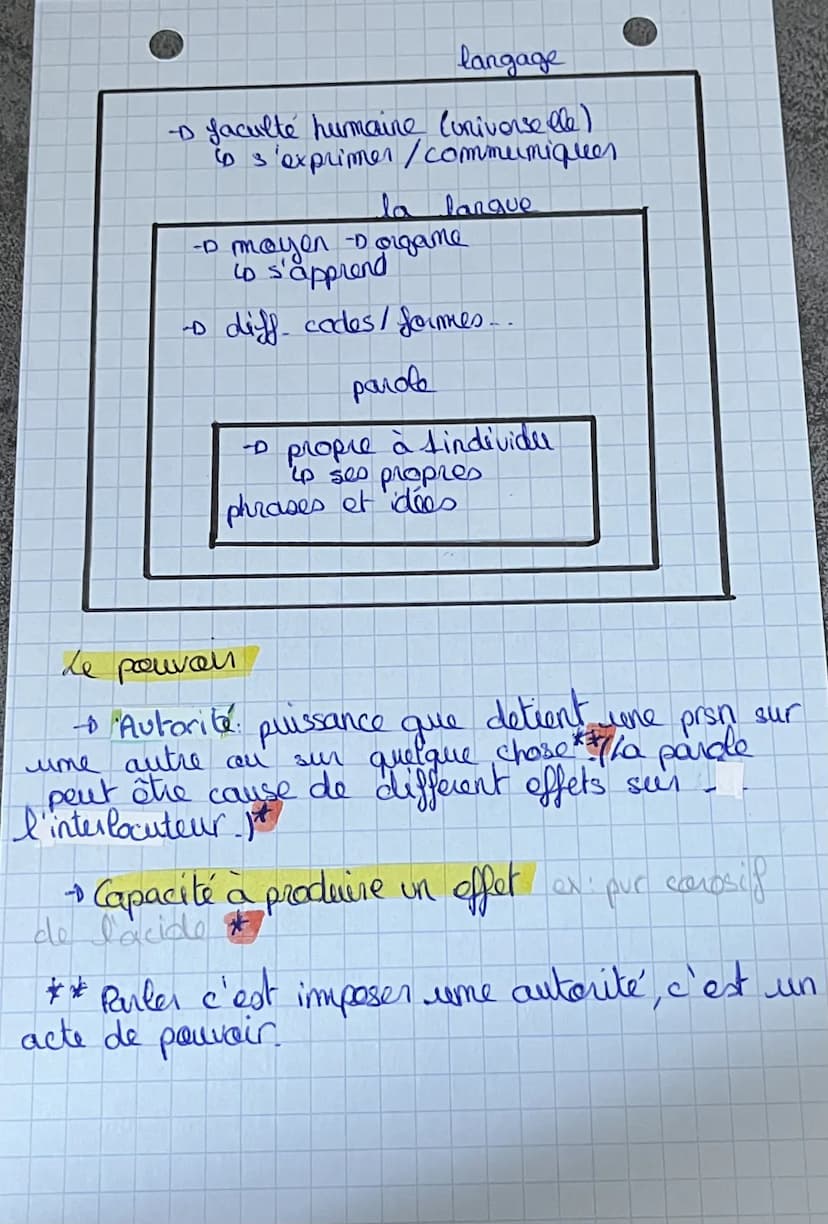 langage
→ faculté humaine (universelle)
↳ s'exprimer/communiquer
la langue
→ moyen → organe
↳ s'apprend
→ diff. codes/formes...
parole
→ propre à 1 individu
↳ ses propres
phrases et idées
Le pouvoir
→ Autorité: puissance que detient une prsn sur
une autre ou sur quelque chose**. (la parole
peut être cause de different effets sur -
l'interlocuteur.)*
→ Capacité à produire un effet ex: pvr corosif
de l'acide *
** Parler c'est imposer une autorité, c'est un
acte de pouvoir.